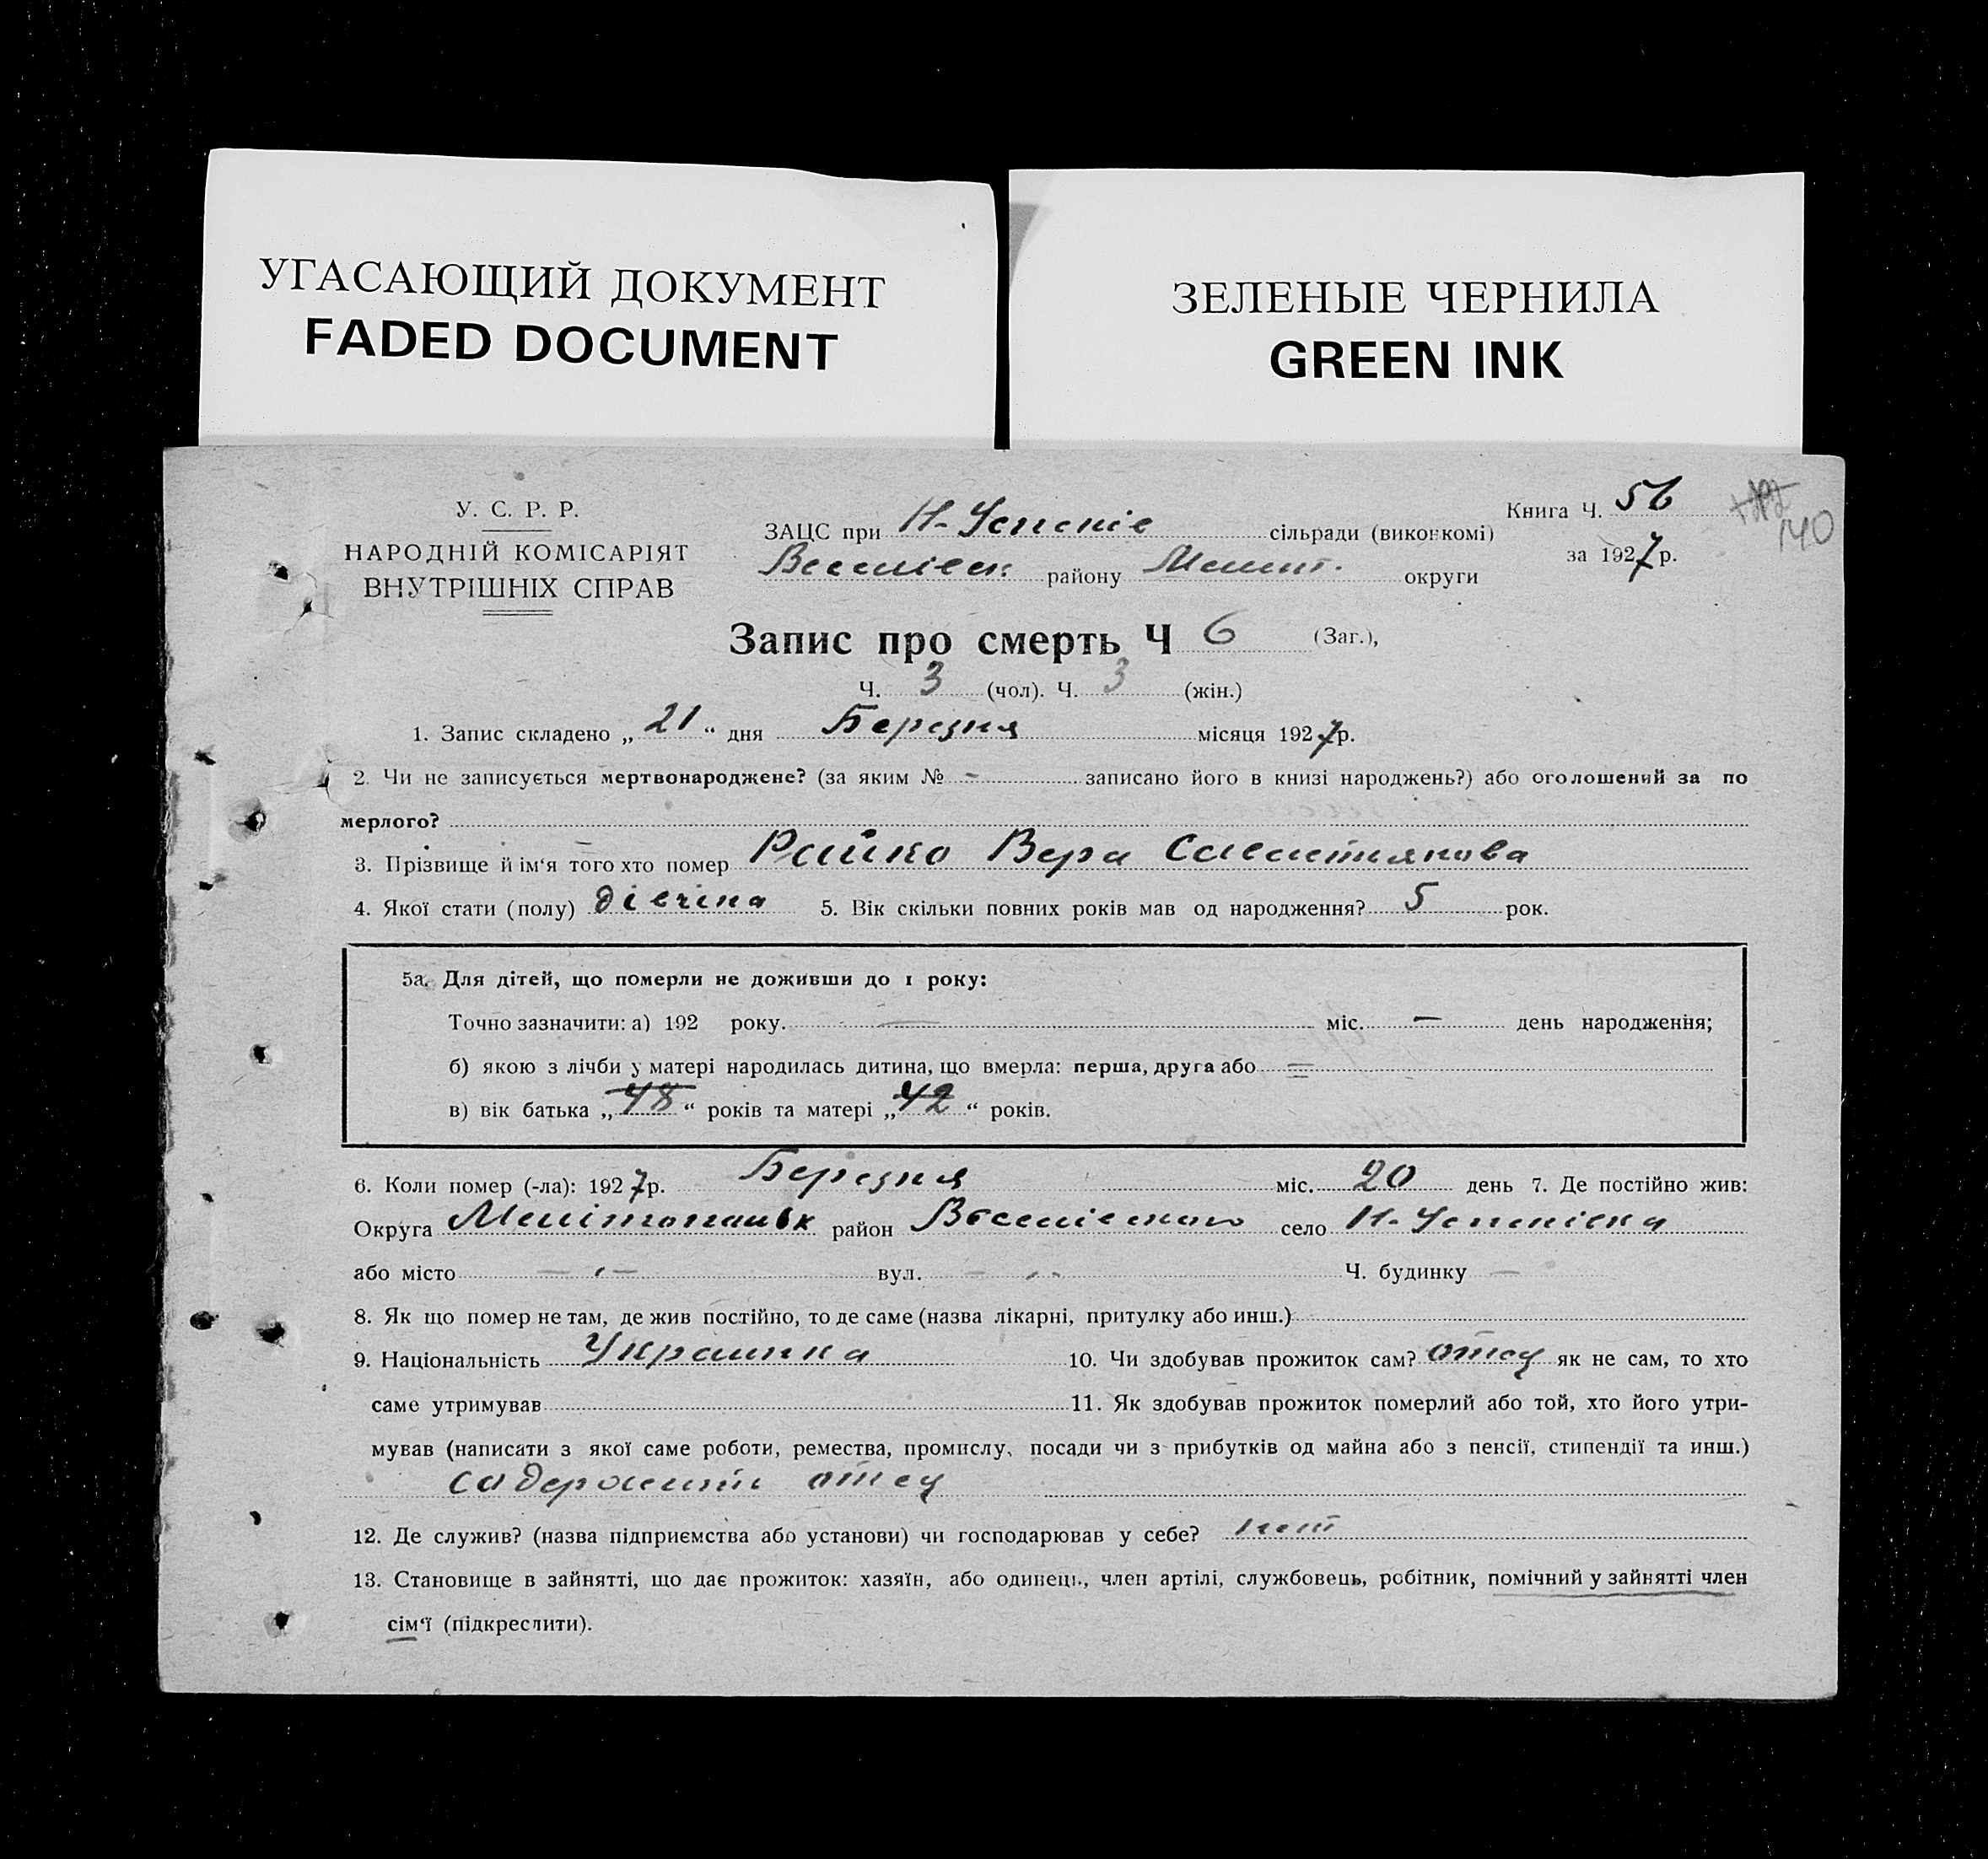 УГАСАЮЩИЙ ДОКУМЕНТ
FADED DOCUMENT
ЗЕЛЕНЫЕ ЧЕРНИЛА
GREEN INK
У. С. Р. Р.
НАРОДНІЙ КОМІСАРІЯТ
ВНУТРІШНІХ СПРАВ
ЗАЦС при Н-Успенів сільради (виконкомі)
Веселівск. району Меліт. округи
Книга Ч. 56
за 1927 р.
140
Запис про смерть Ч 6 (Заг.),
Ч. 3 (чол). Ч. 3 (жін.)
1. Запис складено „ 21 “ дня Березня місяця 1927 р.
2. Чи не записується мертвонароджене? (за яким № - записано його в книзі народжень?) або оголошений за по
мерлого?
3. Прізвище й ім‘я того хто помер Райко Вера Савастянова
4. Якої стати (полу) дівчіна 5. Вік скільки повних років мав од народження? 5 рок.
5а. Для дітей, що померли не доживши до 1 року:
Точно зазначити: а) 192 року. — міс. — день народження;
б) якою з лічби у матері народилась дитина, що вмерла: перша, друга або =
в) вік батька „ 48 “ років та матері „ 42 “ років.
6. Коли помер (-ла): 1927 р. Березня міс. 20 день 7. Де постійно жив:
Округа Мелітопольск район Веселівского село Н-Успенівка
або місто вул. Ч. будинку —
8. Як що помер не там, де жив постійно, то де саме (назва лікарні, притулку або инш.)
9. Національність Украинка 10. Чи здобував прожиток сам? отец як не сам, то хто
саме утримував 11. Як здобував прожиток померлий або той, хто його утри-
мував (написати з якої саме роботи, ремества, промислу, посади чи з прибутків од майна або з пенсії, стипендії та инш.)
садержит отец
12. Де служив? (назва підприємства або установи) чи господарював у себе? нет
13. Становище в зайнятті, що дає прожиток: хазяїн, або одинець, член артілі, службовець, робітник, помічний у зайнятті член
сім‘ї (підкреслити).